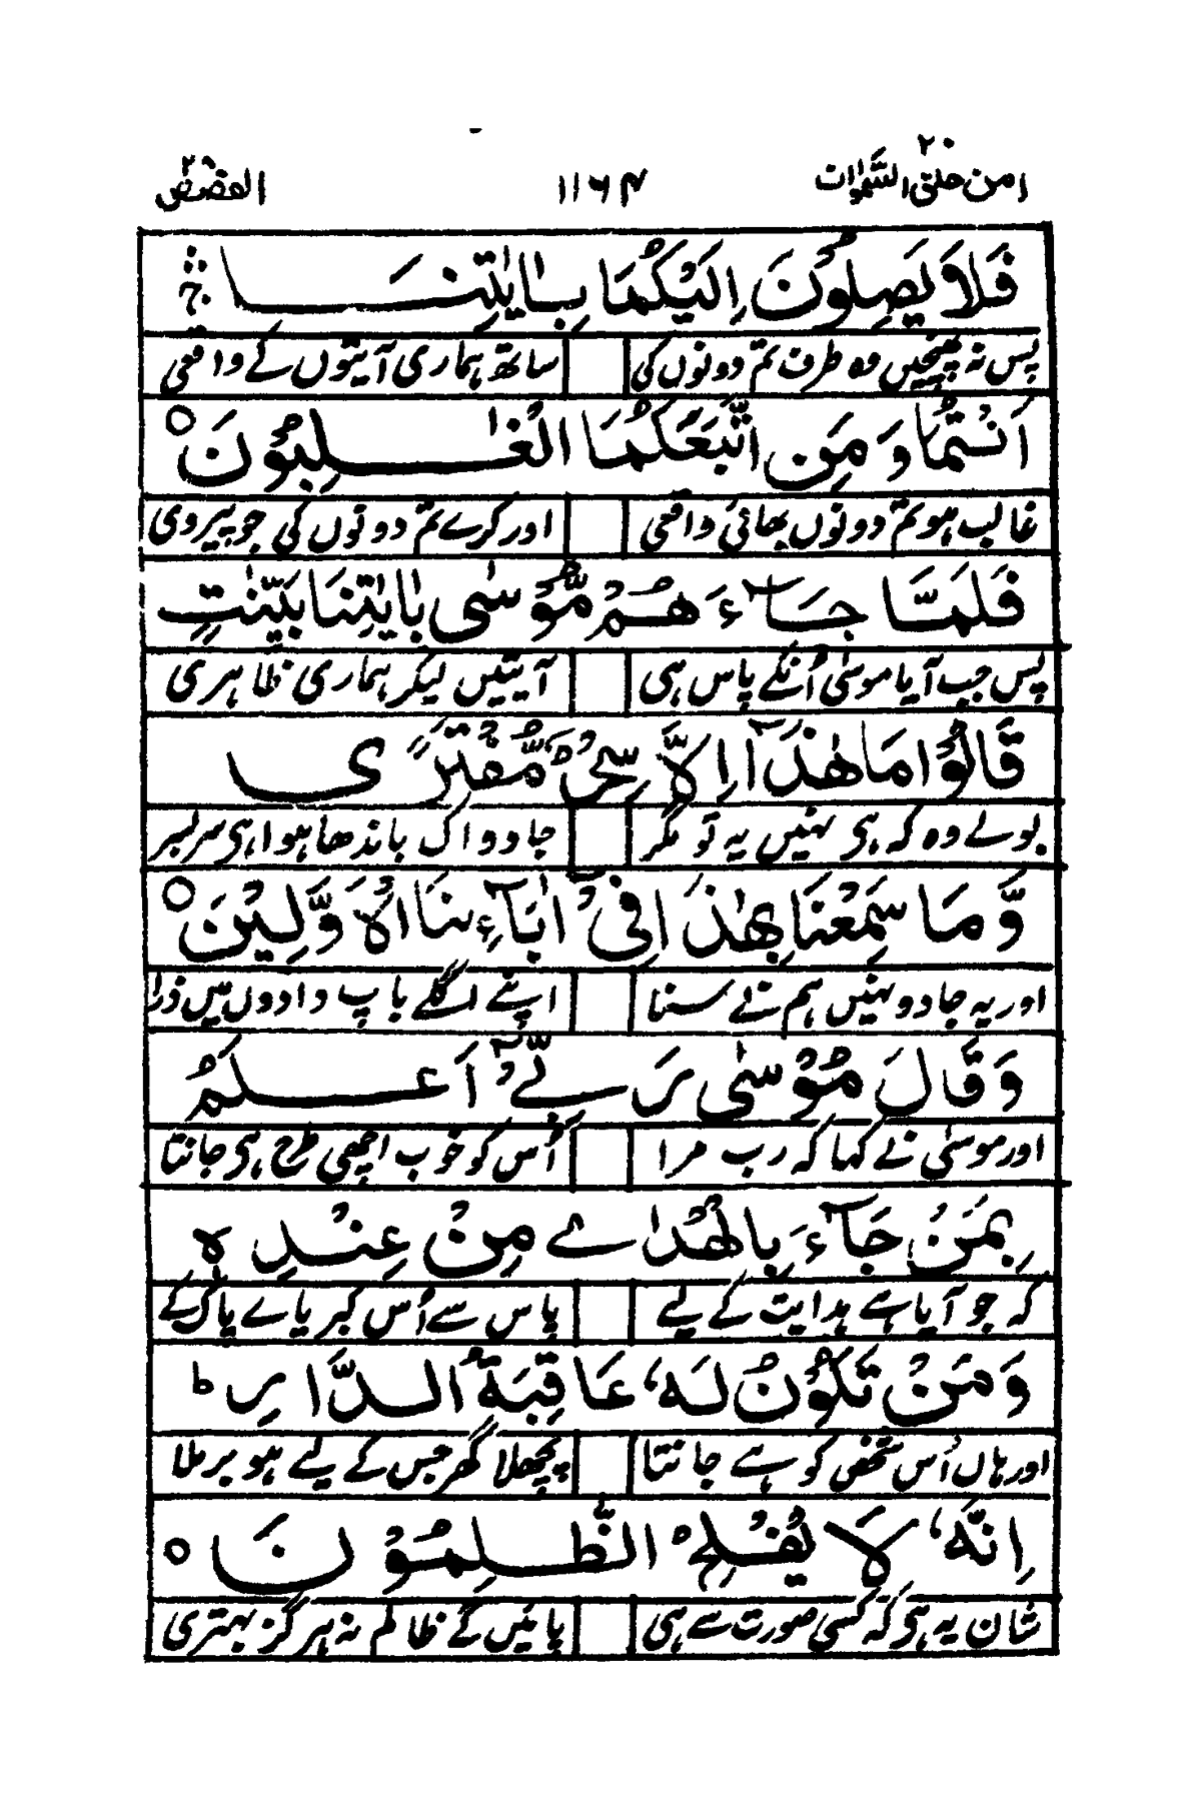 ٢٠
امن خلق السمٰوات ١١٦٤ القصص ٢٨
فَلَا يَصِلُوْنَ اِلَيْكُمَا بِاٰيٰتِنَا ۚۛ
پس نہ پہنچیں وہ طرف تم دونوں کی ساتھ ہماری آیتوں کے واقعی
اَنْتُمَا وَمَنِ اتَّبَعَكُمَا الْغٰلِبُوْنَ ○
غالب ہو تم دونوں بھائی واقعی اور کرے تم دونوں کی جو پیروی
فَلَمَّا جَآءَهُمْ مُّوْسٰى بِاٰيٰتِنَا بَيِّنٰتٍ
پس جب آیا موسٰی اُنکے پاس ہی آیتیں لیکر ہماری ظاہری
قَالُوْا مَا هٰذَآ اِلَّا سِحْرٌ مُّفْتَرًى
بولے وہ کہ ہی نہیں یہ تو مگر جادو اک باندھا ہوا ہی سربسر
وَّمَا سَمِعْنَا بِهٰذَا فِيْٓ اٰبَآءِنَا الْاَوَّلِيْنَ ○
اور یہ جادو نہیں ہم نے سنا اپنے اگلے باپ دادوں میں ذرا
وَقَالَ مُوْسٰى رَبِّيْٓ اَعْلَمُ
اور موسٰی نے کہا کہ رب مرا اُس کو خوب اچھی طرح ہی جانتا
بِمَنْ جَآءَ بِالْهُدٰى مِنْ عِنْدِهٖ
کہ جو آیا ہے ہدایت کے لیے پاس سے اُس کبریا پاک کے
وَمَنْ تَكُوْنُ لَهٗ عَاقِبَةُ الدَّارِ ؕ
اور ہاں اُس شخص کو ہے جانتا پچھلا گھر جس کے لیے ہو برملا
اِنَّهٗ لَا يُفْلِحُ الظّٰلِمُوْنَ ○
شان یہ ہی کہ کسی صورت سے ہی پائیں گے ظالم نہ ہرگز بہتری